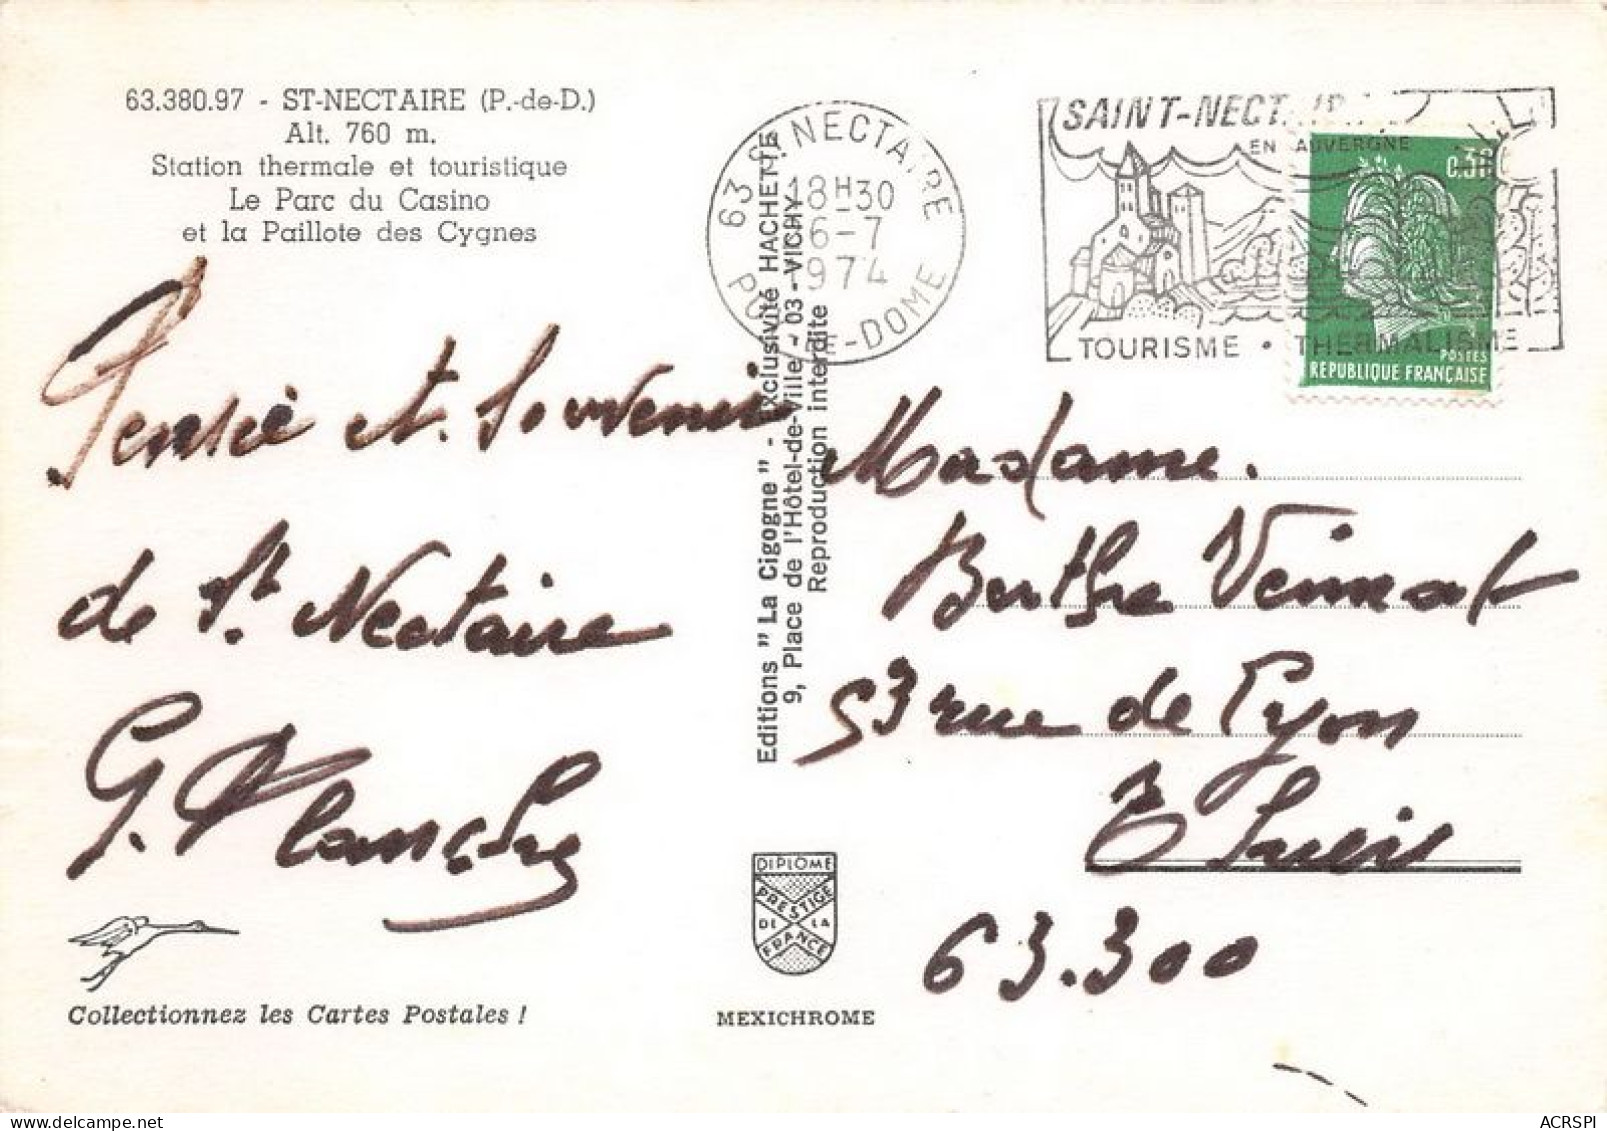 63.380.97 - ST-NECTAIRE (P.-de-D.)
Alt. 760 m.
Station thermale et touristique
Le Parc du Casino
et la Paillote des Cygnes
63 ST NECTAIRE
18H30
6-7
1974
PUY-DE-DOME
SAINT-NECTAIRE
EN AUVERGNE
TOURISME • THERMALISME
0,30
POSTES
REPUBLIQUE FRANÇAISE
Pensée et Souvenir
de St. Nectaire
G. Planche
Editions " La Cigogne " - Exclusivité HACHETTE
9, Place de l'Hôtel-de-Ville - 03 - VICHY
Reproduction interdite
Madame.
Berthe
53 rue de Lyon
Thiers
63.300
DIPLOME
PRESTIGE
DE LA
FRANCE
Collectionnez les Cartes Postales !
MEXICHROME
ACRSPI